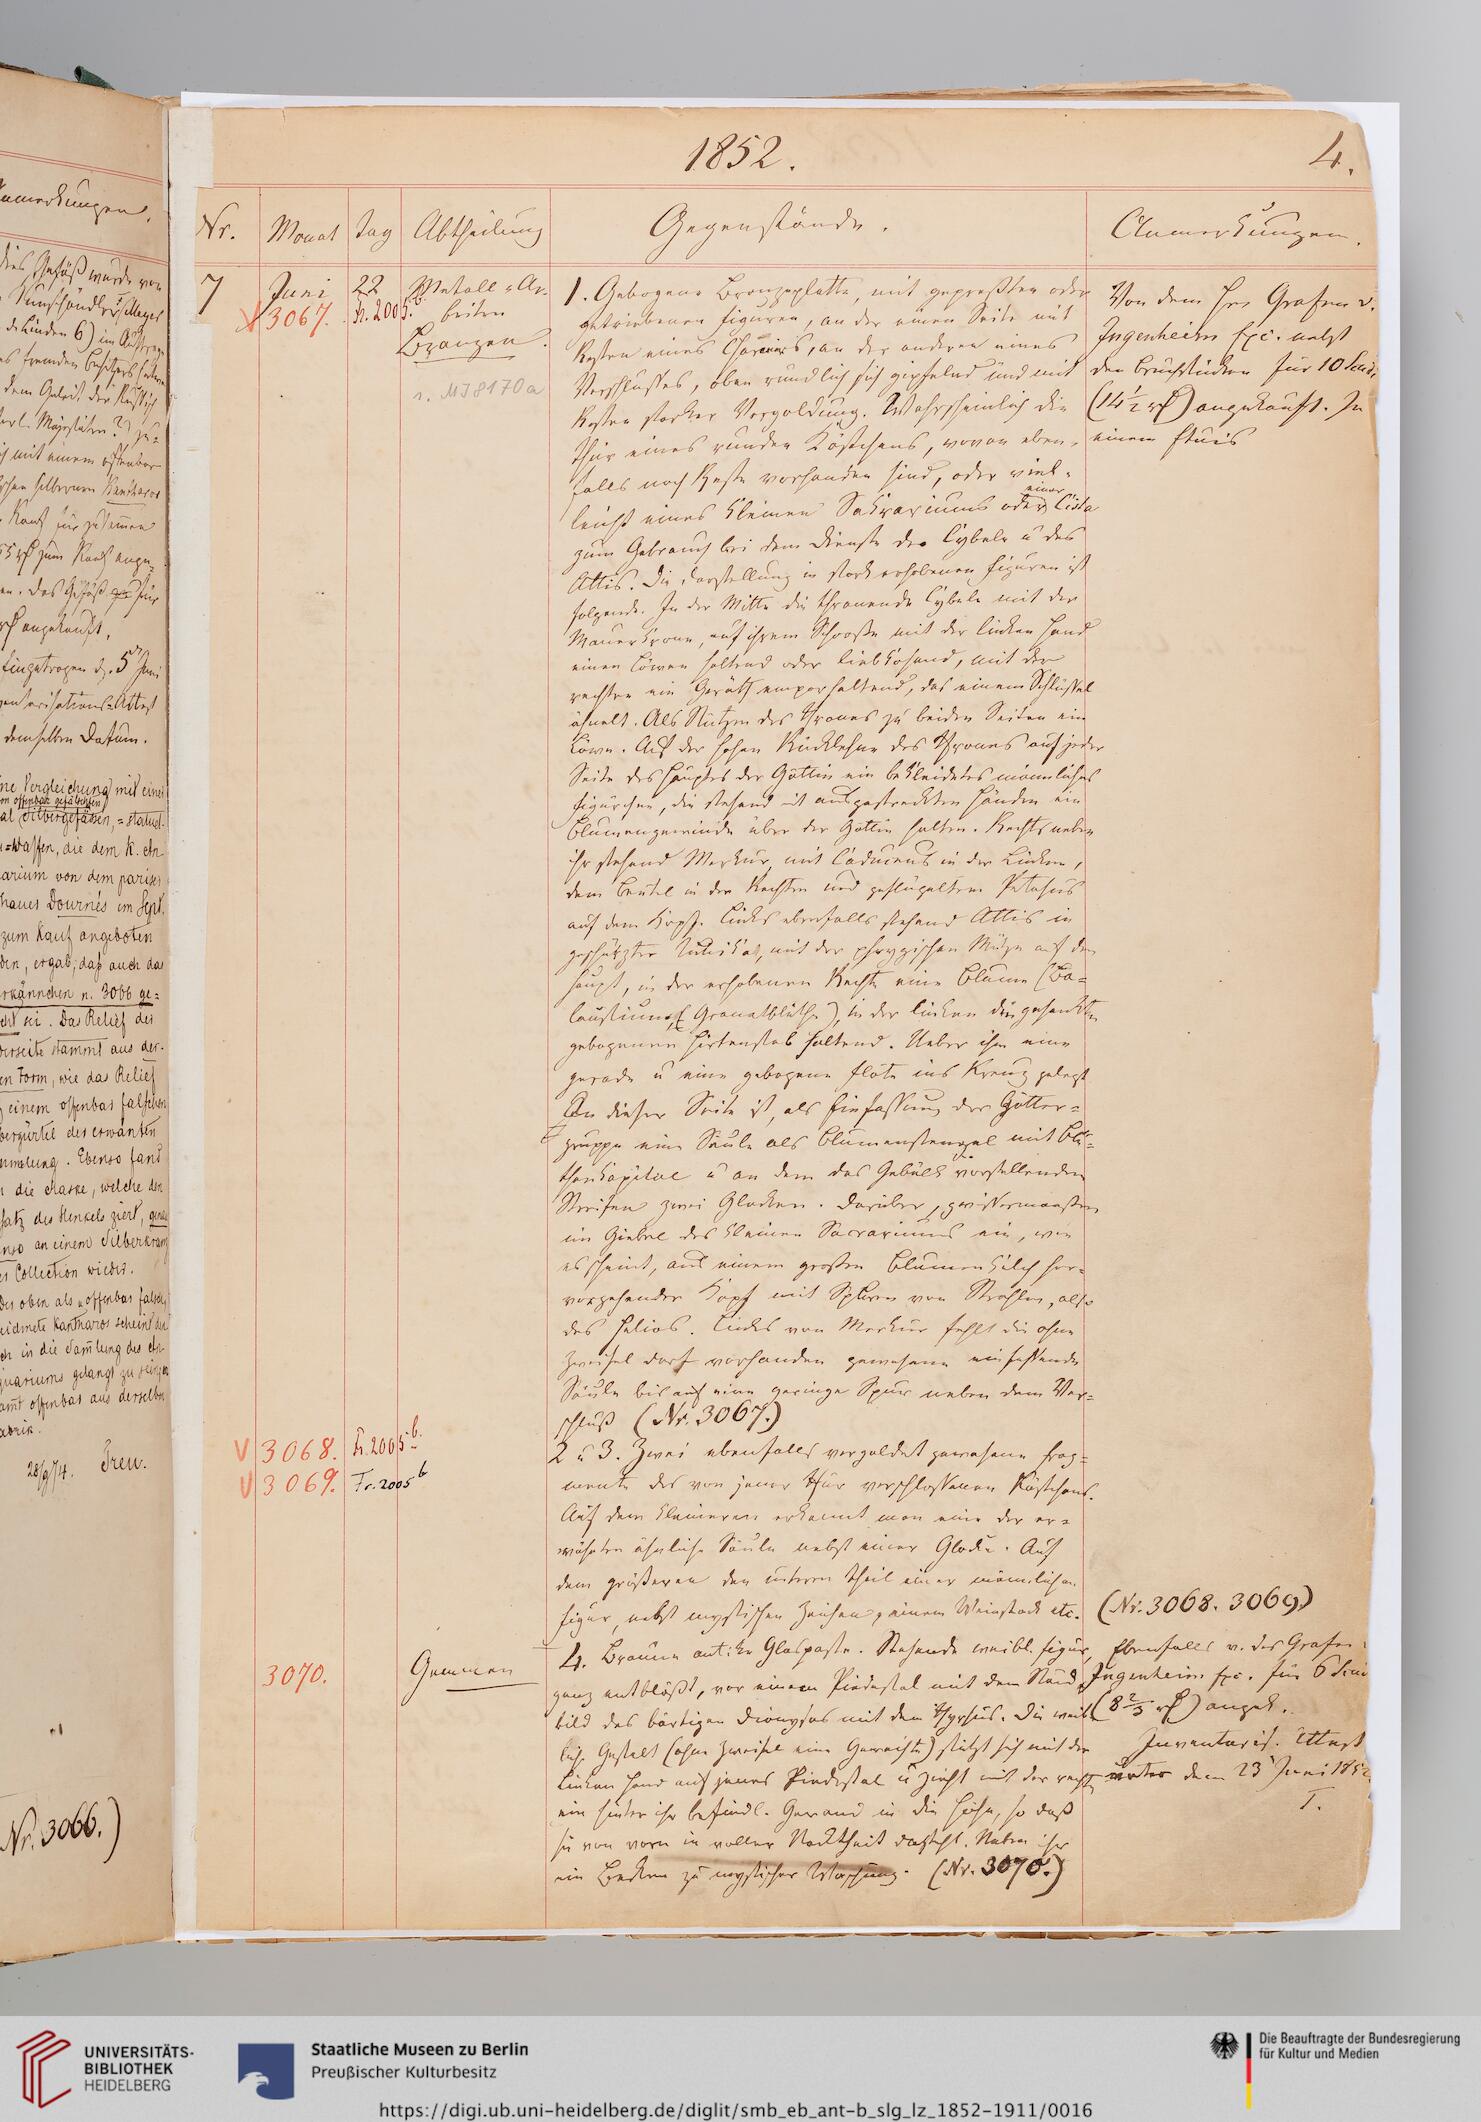 Anmerkungen.
dies Gefäß wurde von
Kunsthändler Mayer
d. Linden 6) im Auftrage
es fremden Besitzers
dem Geleit der Russisch
Majestäten
mit einem offenbar
silbernen Kantharos
Kauf für zusammen
zum Kauf ange-
en. Das Gefäß für
angekauft.
Eingetragen d. 5 Juni
Inventarisations-Attest
demselben Datum.
ne Vergleichung mit eini
on offenbar gefälschten
al Silbergefässen, =statuet-
=waffen, die dem K. An-
arium von dem pariser
hauer Dournès im Sept.
zum Kauf angeboten
den, ergab, daß auch das
rkännchen n. 3066 ge=
cht sei. Das Relief der
derseite stammt aus der-
en Form, wie das Relief
einem offenbar falschen
bergürtel der erwänten
ammlung. Ebenso fand
die Maske, welche den
satz des Henkels ziert, genau
nso an einem Silberkranz
er Collection wieder.
der oben als „offenbar falsch
eichnete Kantharos scheint da
ch in die Sammlung des An-
quariums gelangt zu sein
amt offenbar aus derselben
abrik.
28/9/74. Treu.
Nr. 3066.)
1852.
4.
Nr. Monat Tag Abtheilung Gegenstände. Anmerkungen.
7 Juni 22 Metall=Ar-
3067. Fr. 2005.b. beiten
Bronzen.
n. MI 8170a
1. Gebogene Bronzeplatte, mit gepreßten oder
getriebenen Figuren, an der einen Seite mit
Resten eines Charniers, an der anderen eines
Verschlusses, oben rundlich sich gipfelnd und mit
Resten starker Vergoldung. Wahrscheinlich die
Thür eines runden Kästchens, wovon eben-
falls noch Reste vorhanden sind, oder viel-
leicht eines kleinen Sakrariums oder einer Cista
zum Gebrauch bei dem Dienste der Cybele u des
Attis. Die Darstellung in stark erhobenen Figuren ist
folgende. In der Mitte die thronende Cybele mit der
Mauerkrone, auf ihrem Schooße mit der linken Hand
einen Löwen haltend oder liebkosend, mit der
rechten ein Geräth emporhaltend, das einem Schlüssel
ähnelt. Als Stützen des Thrones zu beiden Seiten ein
Löwe. Auf der hohen Rücklehne des Thrones auf jeder
Seite des Hauptes der Göttin ein bekleidetes männliches
Figürchen, die stehend mit ausgestreckten Händen ein
Blumengewinde über der Göttin halten. Rechts neben
ihr stehend Merkur, mit Caduceus in der Linken,
dem Beutel in der Rechten und geflügeltem Petasus
auf dem Kopf. Links ebenfalls stehend Attis in
geschürzter Tunika, mit der phrygischen Mütze auf dem
Haupt, in der erhobenen Rechte eine Blume (Ba-
laustium, Granatblüthe), in der linken den gesenkten
gebogenen Hirtenstab haltend. Ueber ihm eine
gerade u eine gebogene Flöte ins Kreuz gelegt
An dieser Seite ist, als Einfassung der Götter-
gruppe eine Säule als Blumenstengel mit Blü-
thenkapitäl u an dem das Gebälk vorstellenden
Streifen zwei Glocken. Darüber, gewissermaaßen
im Giebel des kleinen Sacrariums ein, wie
es scheint, aus einem großen Blumenkelch her-
vorgehender Kopf mit Spuren von Strahlen, also
des Helios. Links von Merkur fehlt die ohne
Zweifel dort vorhanden gewesene einfassende
Säule bis auf eine geringe Spur neben dem Ver-
schluß (Nr. 3067.)
V 3068. Fr. 2005b.
V 3069. Fr. 2005b
2 u 3. Zwei ebenfalls vergoldet gewesene Frag-
mente des von jener Thür verschlossenen Kästchens.
Auf dem kleineren erkennt man eine der er-
wähnten ähnliche Säule nebst einer Glocke. Auf
dem größeren den unteren Theil einer männlichen
Figur, nebst mystischen Zeichen, einem Weinstock etc.
3070. Gemmen
4. Braune antike Glaspaste. Stehende weibl. Figur,
ganz entblößt, vor einem Piedestal mit dem Stand-
bild des bärtigen Dionysos mit dem Thyrsus. Die weib-
liche Gestalt (ohne Zweifel eine Geweihte) stützt sich mit der
Linken Hand auf jenes Piedestal u zieht mit der rechten
ein hinter ihr befindl. Gewand in die Höhe, so daß
sie von vorn in voller Nacktheit dasteht. Neben ihr
ein Becken zu mystischer Waschung. (Nr. 3070.)
Von dem Hrn Grafen v.
Ingenheim nebst
den Bruchstücken für 10 Scudi
(14 1/2 rℓ) angekauft. In
einem Etuis
(Nr. 3068. 3069.)
Ebenfalls v. des Grafen v.
Ingenheim für 6 Scudi
(8 2/3 rℓ) angek.
Inventaris. Attest
unter dem 23 Juni 1852
T.
UNIVERSITÄTS-
BIBLIOTHEK
HEIDELBERG
Staatliche Museen zu Berlin
Preußischer Kulturbesitz
Die Beauftragte der Bundesregierung
für Kultur und Medien
https://digi.ub.uni-heidelberg.de/diglit/smb_eb_ant-b_slg_lz_1852-1911/0016